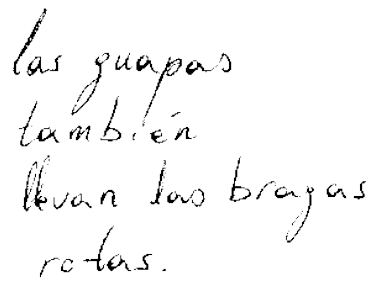 las guapas
también
llevan las bragas
rotas.